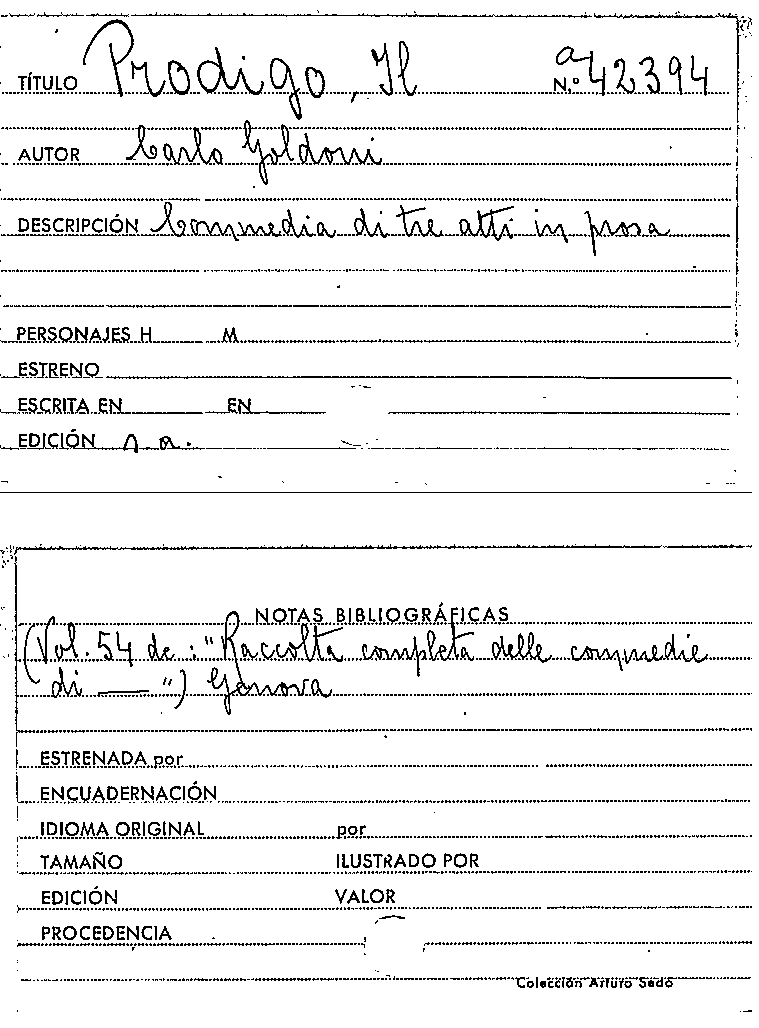 TÍTULO Prodigo, Il N.º a 42394
AUTOR Carlo Goldoni
DESCRIPCIÓN Commedia di tre atti in prosa
PERSONAJES H M
ESTRENO
ESCRITA EN EN
EDICIÓN s.a.
NOTAS BIBLIOGRÁFICAS
(Vol. 54 de: "Raccolta completa delle commedie
di ——— ") Genova
ESTRENADA por
ENCUADERNACIÓN
IDIOMA ORIGINAL por
TAMAÑO ILUSTRADO POR
EDICIÓN VALOR
PROCEDENCIA
Colección Arturo Sedó